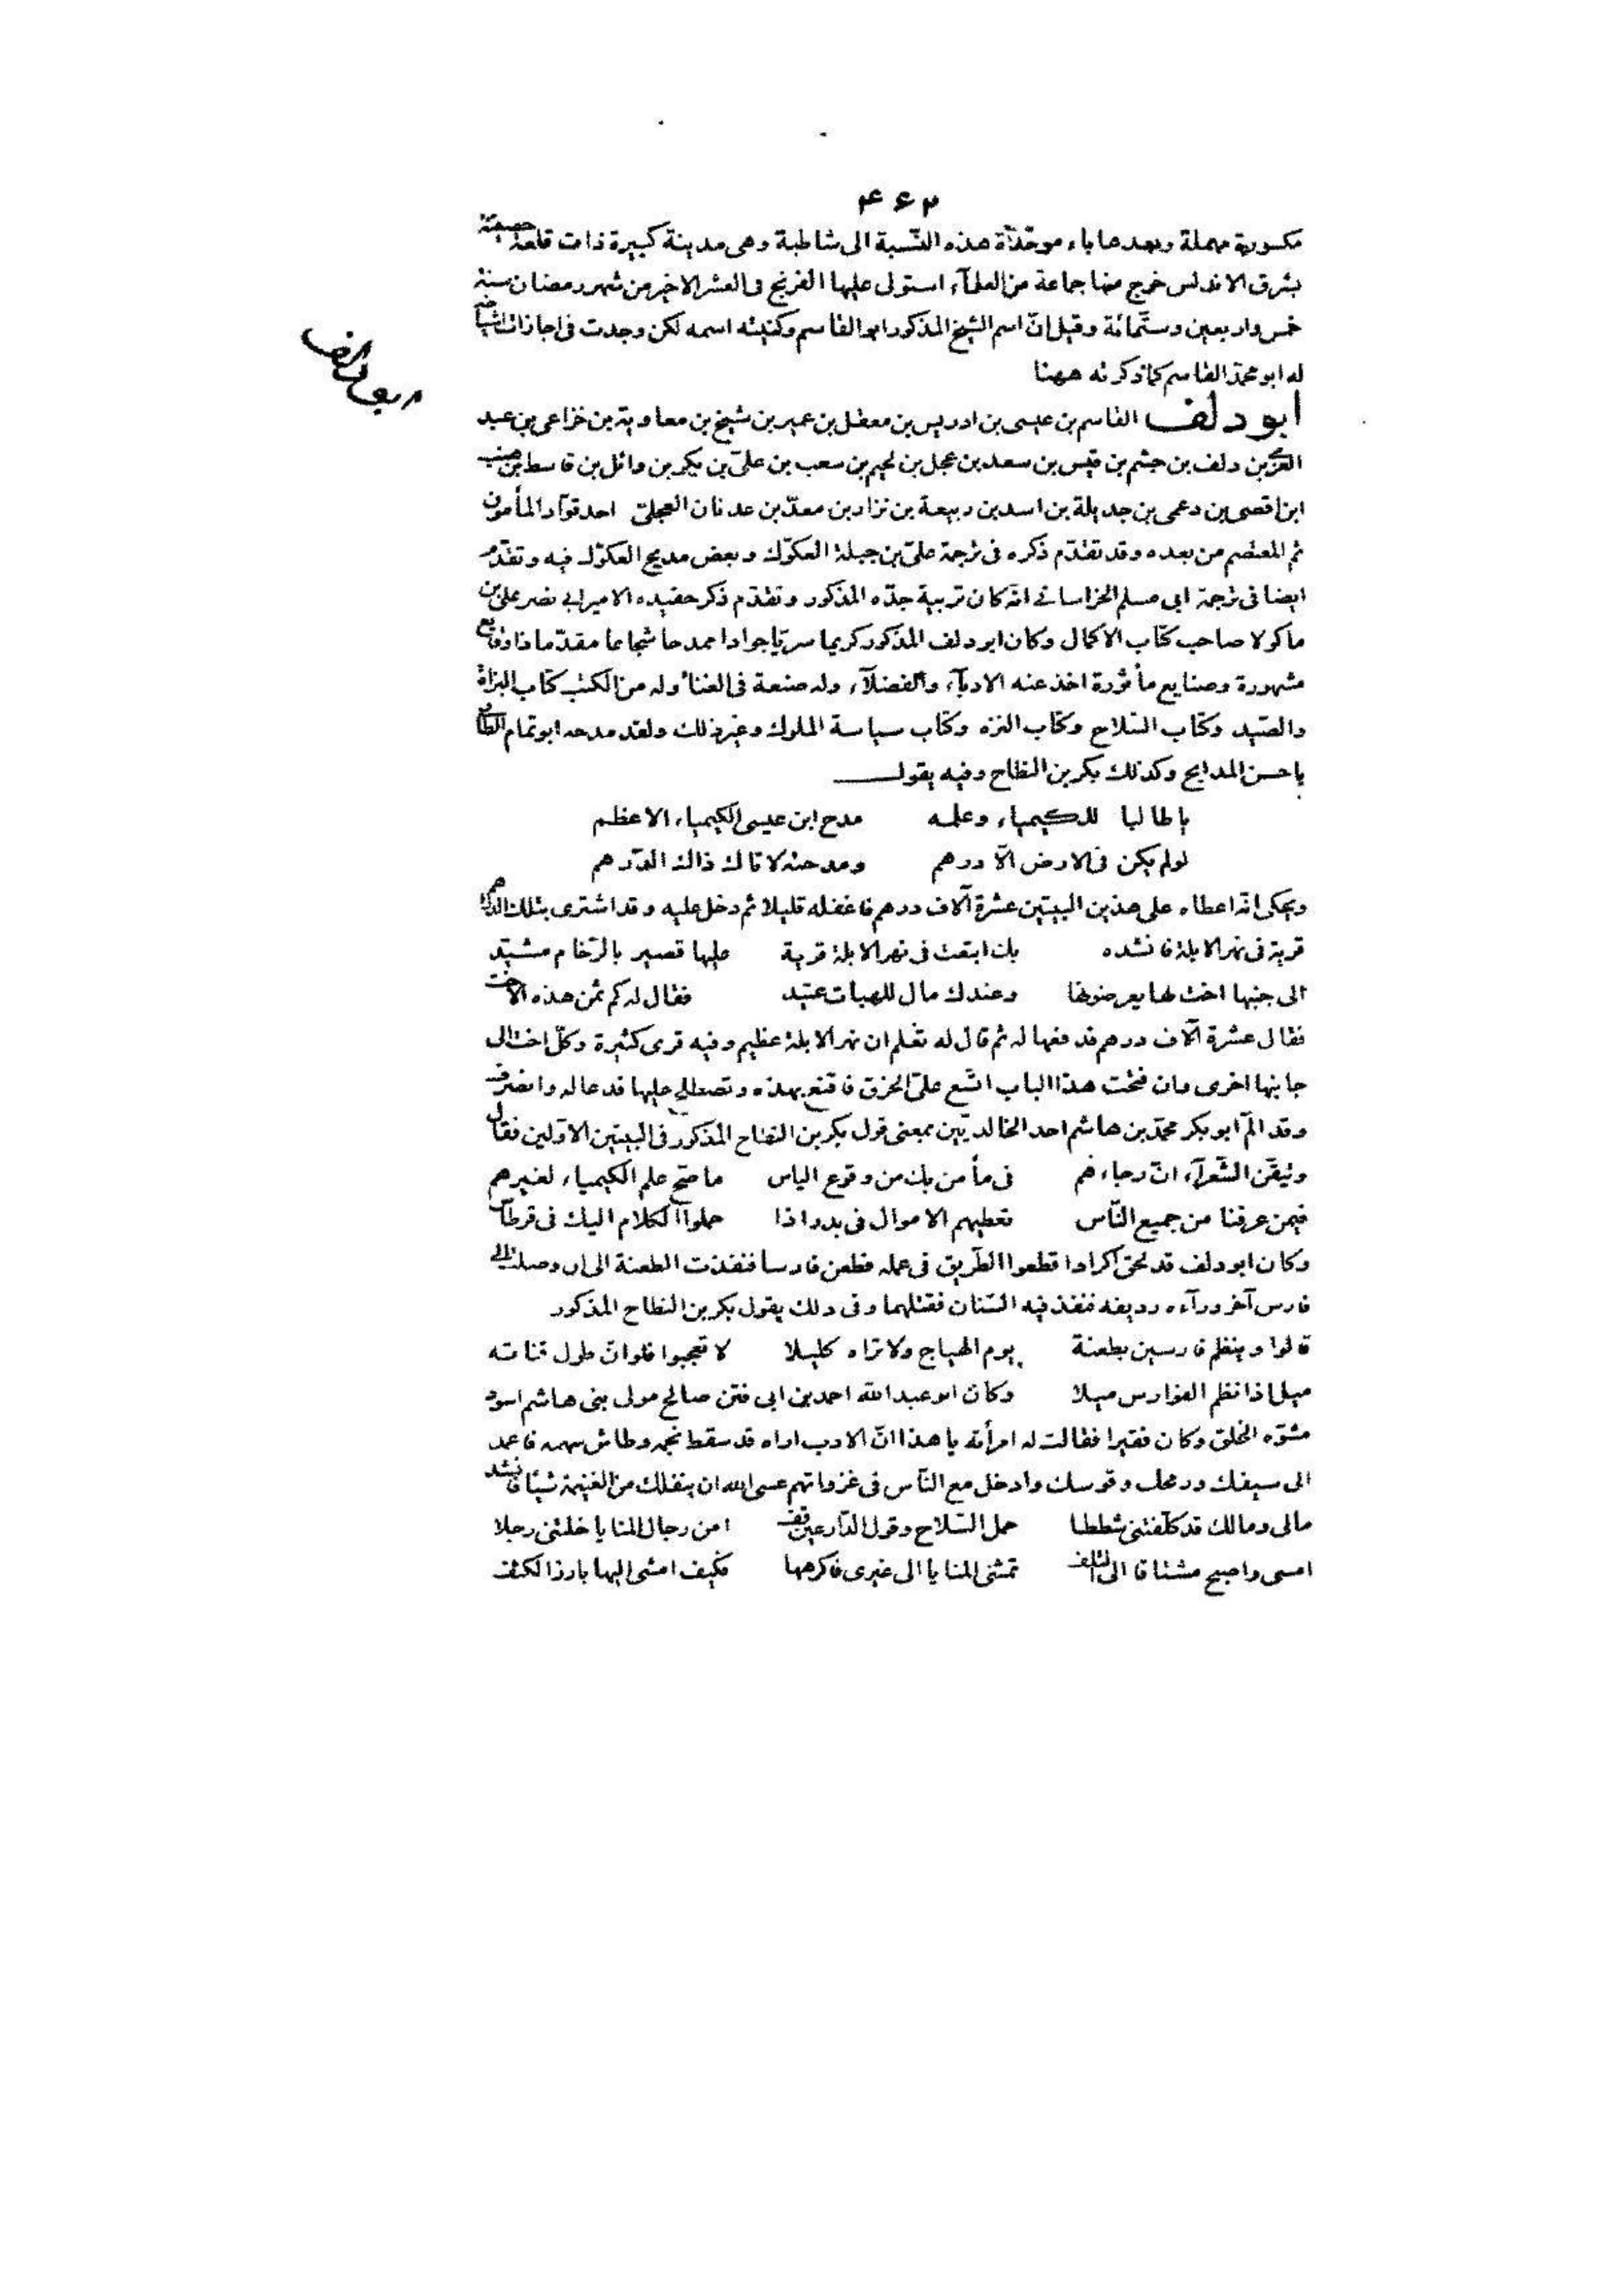 ۴۶۲
مكسورة مهملة وبعدها باء موحّدة هذه النّسبة الى شاطبة وهى مدينة كبيرة ذات قلعة حصينة
بشرق الاندلس خرج منها جماعة من العلمآء استولى عليها الفرنج فى العشر الاخير من شهر رمضان سنة
خمس واربعين وستّمائة وقيل انّ اسم الشيخ المذكور ابو القاسم وكنيته اسمه لكن وجدت فى اجازات اشياخه
له ابو محمّد القاسم كما ذكرته ههنا
ابو دلف
ابو دلف القاسم بن عيسى بن ادريس بن معقل بن عمير بن شيخ بن معاوية بن خزاعى بن عبد
العزّى بن دلف بن جشم بن قيس بن سعد بن عجل بن لجيم بن صعب بن علىّ بن بكر بن وائل بن قاسط بن هنب
ابن اقصى بن دعمى بن جديلة بن اسد بن ربيعة بن نزار بن معدّ بن عدنان العجلىّ احد قوّاد المأمون
ثم المعتصم من بعده وقد تقدّم ذكره فى ترجمة علىّ بن جبلة العكوّك وبعض مديح العكوّك فيه وتقدّم
ايضا فى ترجمة ابى مسلم الخراسانى انّه كان تربية جدّه المذكور وتقدّم ذكر حفيده الامير ابى نصر على بن
ماكولا صاحب كتاب الاكمال وكان ابو دلف المذكور كريما سريّا جوادا ممدحا شجاعا مقدّما ذا وقايع
مشهورة وصنايع مأثورة اخذ عنه الادبآء والفضلآء وله صنعة فى الغنا وله من الكتب كتاب البزاة
والصّيد وكتاب السّلاح وكتاب النزه وكتاب سياسة الملوك وغير ذلك ولقد مدحه ابو تمام الطائى
باحسن المدايح وكذلك بكر بن النطاح وفيه يقول
يا طالبا للكيمياء وعلمه مدح ابن عيسى الكيمياء الاعظم
لو لم يكن فى الارض الّا درهم ومدحته لاتاك ذاك الدّرهم
ويحكى انّه اعطاه على هذين البيتين عشرة آلاف درهم فاغفله قليلا ثم دخل عليه وقد اشترى بتلك الدراهم
قرية فى نهر الابلة فانشده بك ابتعت فى نهر الابلة قرية عليها قصير بالرّخام مشيّد
الى جنبها اخت لها يعرضونها وعندك مال للهبات عتيد فقال له كم ثمن هذه الاخت
فقال عشرة آلاف درهم فدفعها له ثم قال له تعلم ان نهر الابلة عظيم وفيه قرى كثيرة وكلّ اخت الى
جانبها اخرى وان فتحت هذا الباب اتّسع علىّ الخرق فاقنع بهذه ونصطلح عليها فدعا له وانصرف
وقد المّ ابو بكر محمّد بن هاشم احد الخالديّين بمعنى قول بكر بن النطاح المذكور فى البيتين الاوّلين فقال
وتيقّن الشّعرآء انّ رجاءهم فى مأمن بك من وقوع الياس ما صحّ علم الكيمياء لغيرهم
فيمن عرفنا من جميع النّاس تعطيهم الاموال فى بدر اذا حملوا الكلام اليك فى قرطاس
وكان ابو دلف قد لحق اكرادا قطعوا الطّريق فى عمله فطعن فارسا فنفذت الطعنة الى ان وصلت الى
فارس آخر ورآءه رديفه فنفذ فيه السّنان فقتلهما وفى ذلك يقول بكر بن النطاح المذكور
قالوا وينظم فارسين بطعنة يوم الهياج ولا تراه كليلا لا تعجبوا فلو انّ طول قناته
ميل اذا نظم الفوارس ميلا وكان ابو عبد الله احمد بن ابى فنن صالح مولى بنى هاشم اسود
مشوّه الخلق وكان فقيرا فقالت له امرأته يا هذا انّ الادب اراه قد سقط نجمه وطاش سهمه فاعمد
الى سيفك ورمحك وقوسك وادخل مع النّاس فى غزواتهم عسى الله ان ينفلك من الغنيمة شيئا فانشد
مالى ومالك قد كلّفتنى شططا حمل السّلاح وقول الدّارعين قف امن رجال المنايا خلتنى رجلا
امسى واصبح مشتاقا الى التلف تمشى المنايا الى غيرى فاكرهها فكيف امشى اليها بارز الكتف